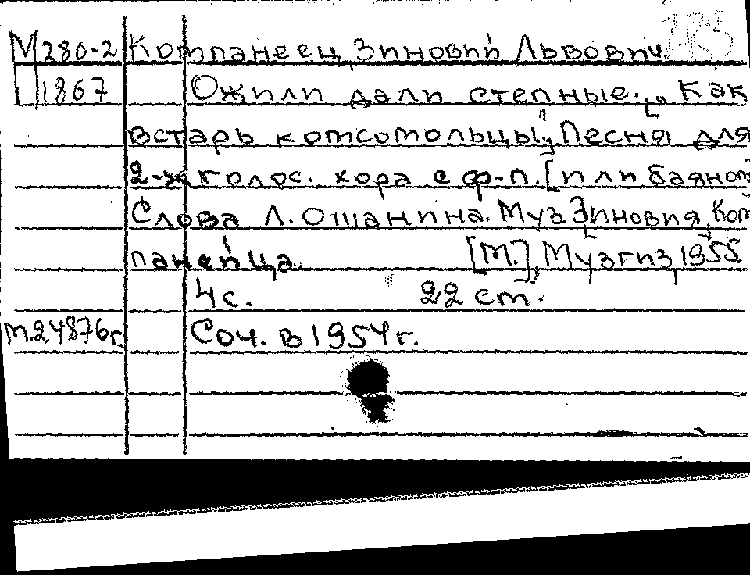 М 280-2 Компанеец, Зиновий Львович.
1867 Ожили дали степные. [„Как
встарь комсомольцы"] Песня для
2-х голос. хора с ф-п. [или баяном]
Слова Л. Ошанина. Муз. Зиновия Ком
панейца. [М.], Музгиз, 1955
4 с. 22 cm.
М.24876г. Соч. в 1954 г.